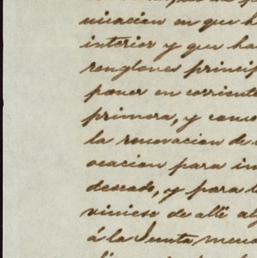 nicacion en que h
interior y que ha
renglones princip
poner en corriente
primera, y como
la renovacion de
ocacion para in
deseado, y para l
viniese de allí al
á la Junta, men